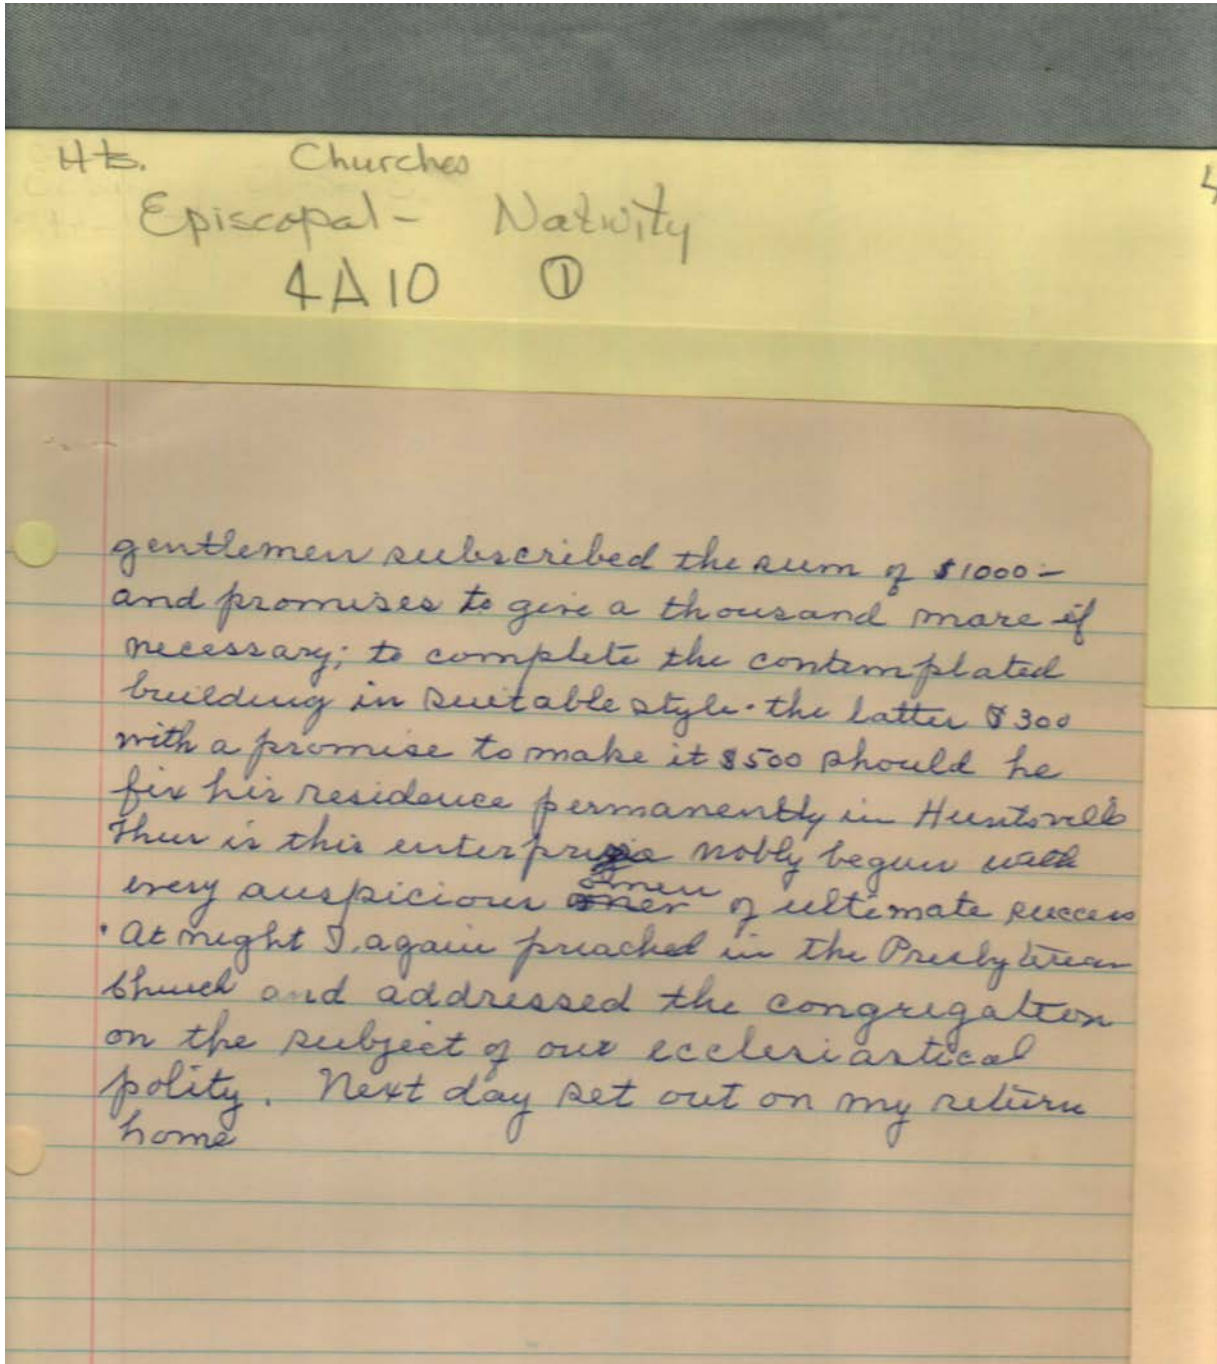 Hts. Churches
Episcopal - Nativity
4A10 ①
gentlemen subscribed the sum of $1000 -
and promises to give a thousand more if
necessary; to complete the contemplated
building in suitable style. the latter $300
with a promise to make it $500 should he
fix his residence permanently in Huntsville
Thus is this enterprise nobly begun with
every auspicious omen of ultimate success
. At night I again preached in the Presbyterian
Church and addressed the congregation
on the subject of our ecclesiastical
polity. Next day set out on my return
home